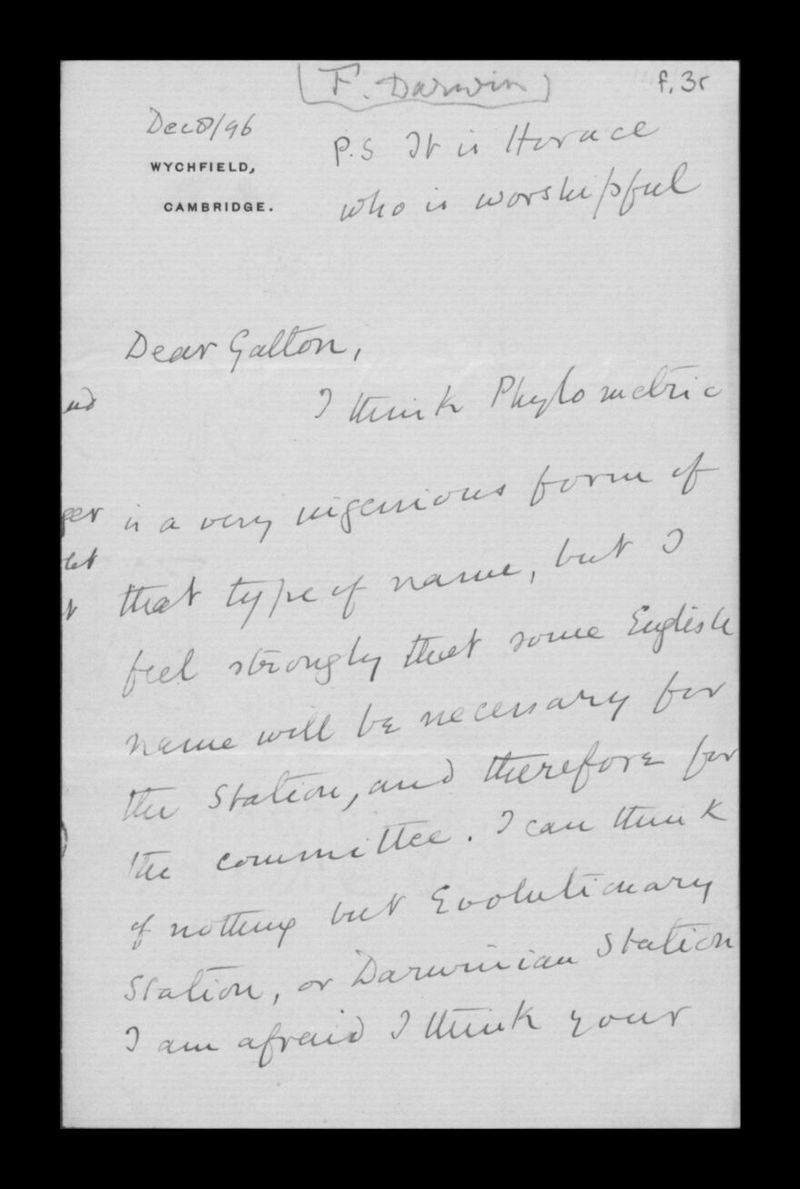 (F. Darwin)
f. 3r
Dec 8/96
WYCHFIELD,
CAMBRIDGE.
P.S It is Horace
who is worshipful
Dear Galton,
I think Phylometric
is a very ingenious form of
that type of name, but I
feel strongly that some English
name will be necessary for
the Station, and therefore for
the committee. I can think
of nothing but Evolutionary
Station, or Darwinian Station
I am afraid I think your